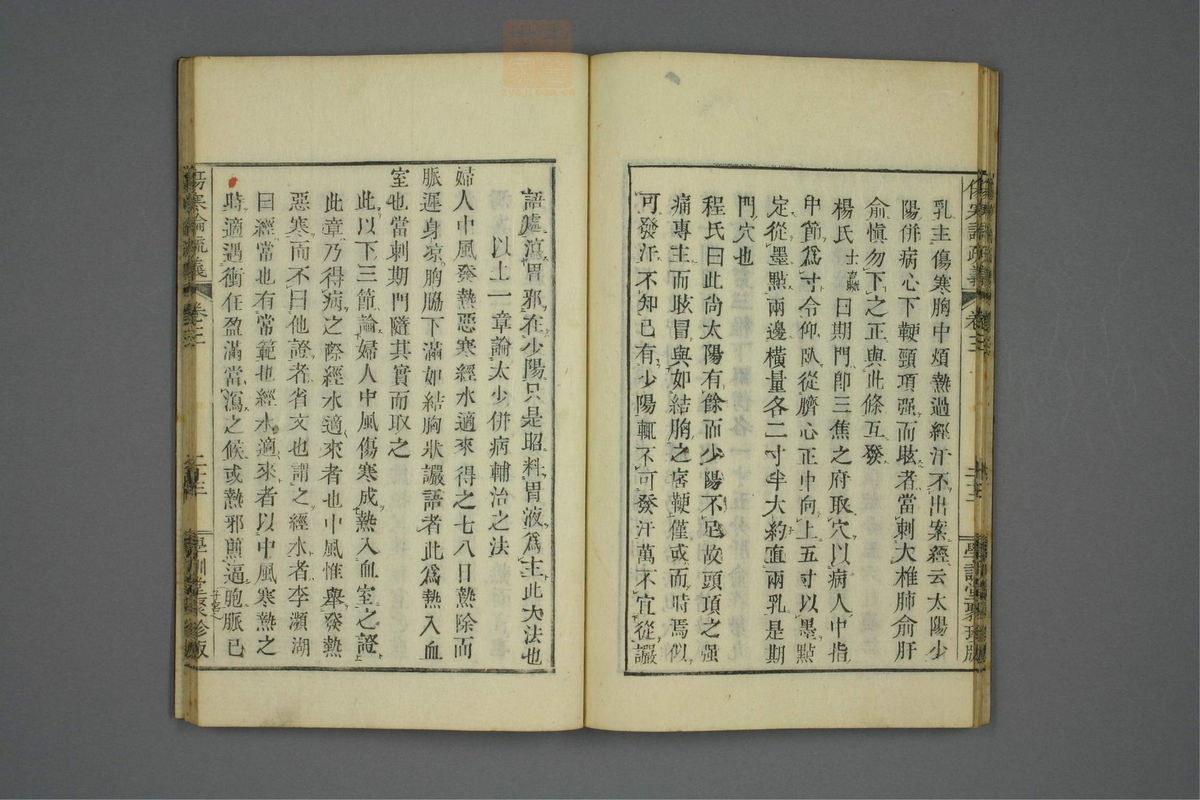 乳主傷寒胸中煩熱過經汗不出案經云太陽少
陽併病心下鞕頸項强而眩者當刺大椎肺俞肝
俞愼勿下之正與此條互發
楊氏士瀛曰期門卽三焦之府取穴以病人中指
中節爲寸令仰臥從臍心正中向上五寸以墨點
定從墨點兩邊橫量各二寸半大約直兩乳是期
門穴也
程氏曰此尚太陽有餘而少陽不足故頭項之强
痛專主而眩冒與如結胸之痞鞕僅或而時焉似
可發汗不知已有少陽輒不可發汗萬不宜從讝
語爐竄胃邪在少陽只是昭料胃液爲主此大法也
以上一章論太少併病輔治之法
婦人中風發熱惡寒經水適來得之七八日熱除而
脈遲身涼胸脇下滿如結胸狀讝語者此爲熱入血
室也當刺期門隨其實而取之
此以下三節論婦人中風傷寒成熱入血室之證
此章乃得病之際經水適來者也中風惟舉發熱
惡寒而不曰他證者省文也謂之經水者李瀕湖
曰經常也有常範也經水適來者以中風寒熱之
時適遇衝任盈滿當瀉之候或熱邪煎逼胞脈已
傷寒論疏義 卷三 二十三 學訓堂聚珍版